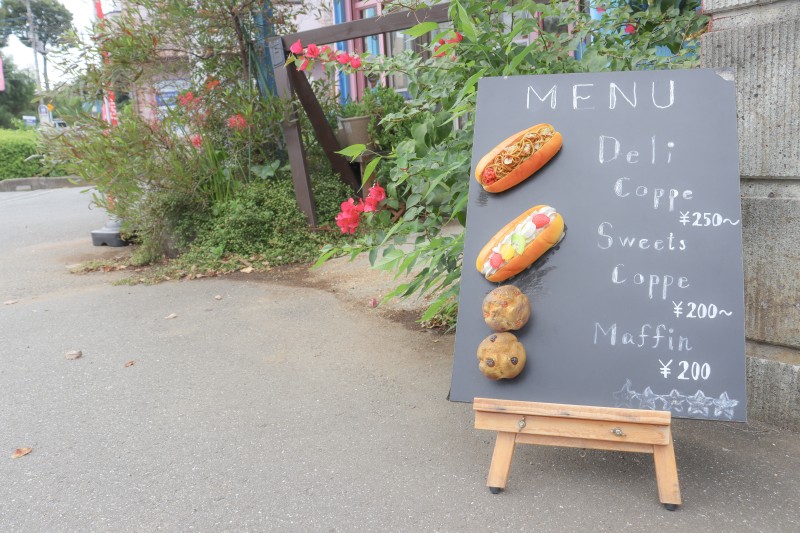 MENU
Deli
Coppe
¥250~
Sweets
Coppe
¥200~
Maffin
¥200